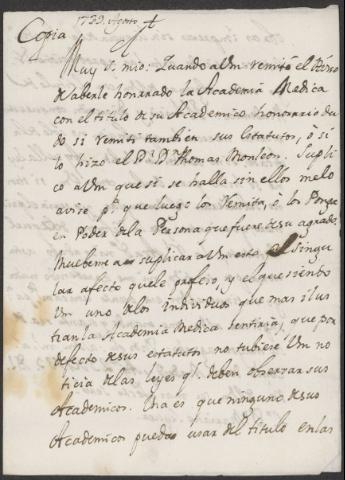 Copia 1739. Agosto
Muy S. mio: Quando a Vm remití el
haberle honarado la Academia Medica
con el titulo de su Academico honorario du
do si remiti tambien sus Estatutos, o si
lo hizo el D.r D.n Thomas Monleon. Supli
co a Vm que si se halla sin ellos me lo
avise p.a que luego los remita, o los Ponga
en Poder de la Persona que fuere de su agrado.
Muebeme a suplicar a Vm esto el Singu
lar afecto que le profeso, y el que siento
Vm uno de los individuos que mas ilus
tran la Academia Medica sentiria, que por
defecto de sus estatutos no tubiere Vm no
ticia de las leyes q.e deben observar sus
Academicos. Una es que ninguno de sus
Academicos puedas usar del titulo en las